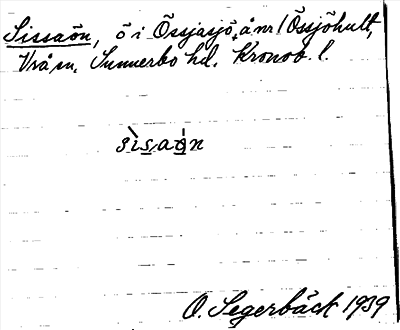 Sissaön, ö i Össjasjö, å nr 1 Össjöhult,
Vrå sn. Sunnerbo hd. Kronob. l.
sìsaön
O. Segerbäck 1939